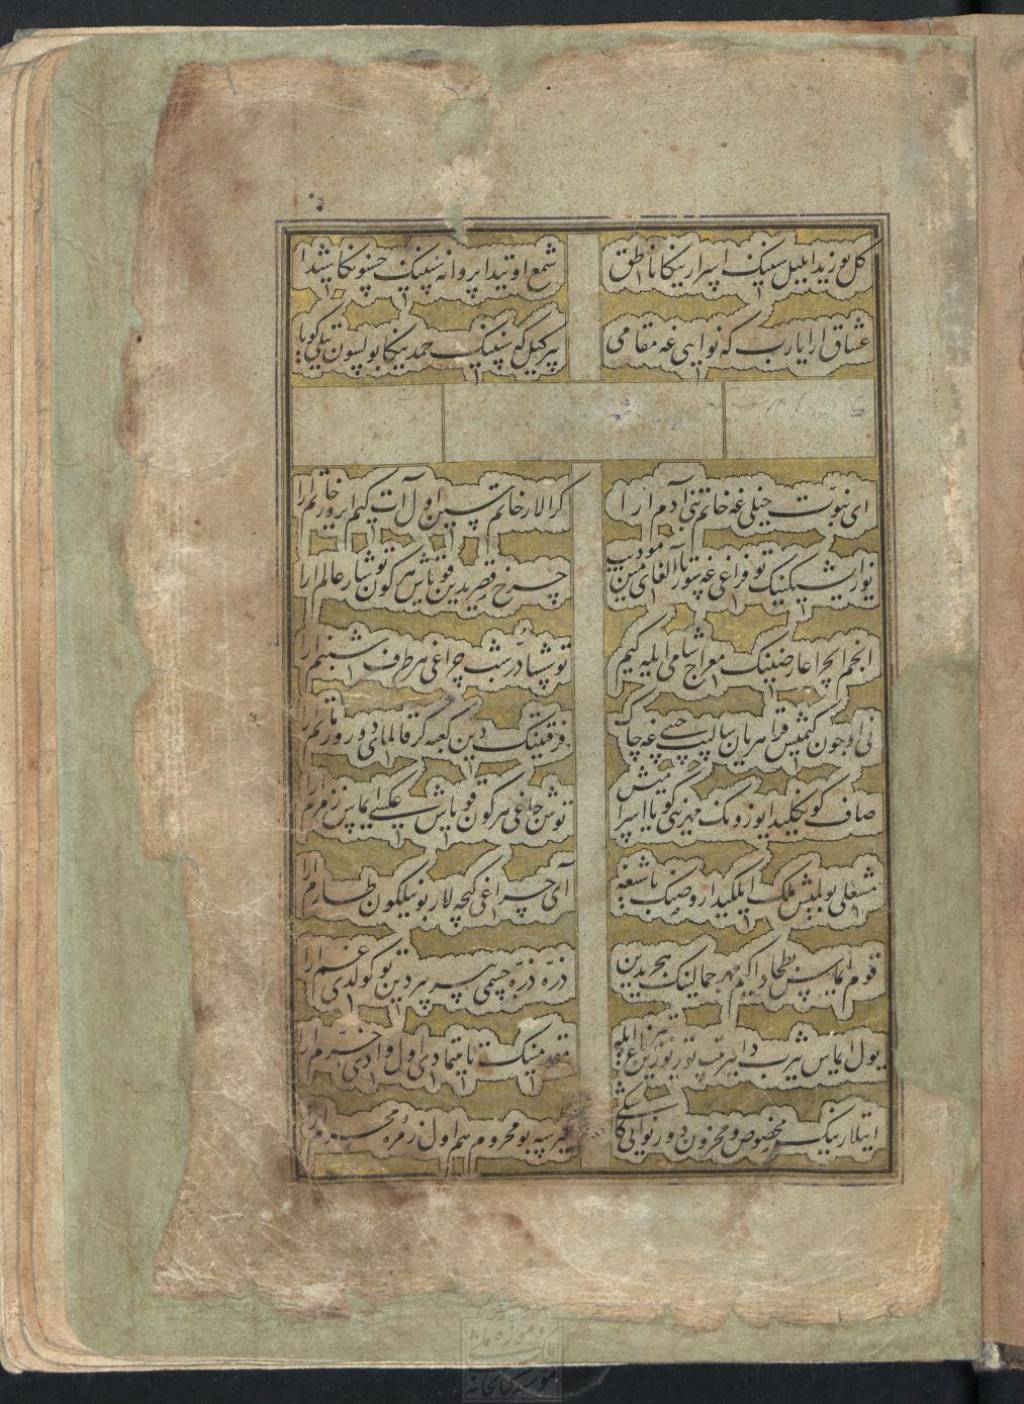 گل یوزیدا بلبل سنینک اسرارینکا ناطق
شمع اوتیدا پروانه سنینک حسنونکا شیدا
عشاق ارا یارب که نوایی غه مقامی
بیرگیل که سنینک حمدینکا بولسون تیلی گویا
ای نبوت خیلی غه خاتم بنی آدم ارا
کرالار خاتم سین اول آت کیم ایرور خاتم ارا
یوز اریشینکنیک توفراغی غه سورتار آلغای مین مودیب
چرخ قصریدین قویاش هر کون توشار عالم ارا
انجم ایچرا عارضینک معراج شامی ایله کیم
توشسا در شب چراغی هر طرف شبنم ارا
نی اوجون کیمیش قرا هریان سالیب جیبی غه چاک
فرقتینک دین کعبه گر قالمای دورور ماتم ارا
صاف کونکلیدا یوزونک مهرینی گویا اسرامیش
توشن چاغی هر کون قویاش عکسی ایماس زمزم ارا
مشعلی بولمیش ملک ایلگیدا روضنک باشیغه
آی چراغی کیچه لار بو نیلگون طارم ارا
قوم ایماس بطحادا کیم مهر جمالینک هجریدین
ذره ذره جسمی بیر بیر دین توکولدی غم ارا
یول ایماس یثرب دا بیرتیب تور یوزین تیرناغ ایله
مقدمینک تاپمادی اول وادی خرم ارا
ایتلارینک مخصوص و محزون دور نوایی کاشکی
کیرسه بو محروم هم اول زمره محرم ارا